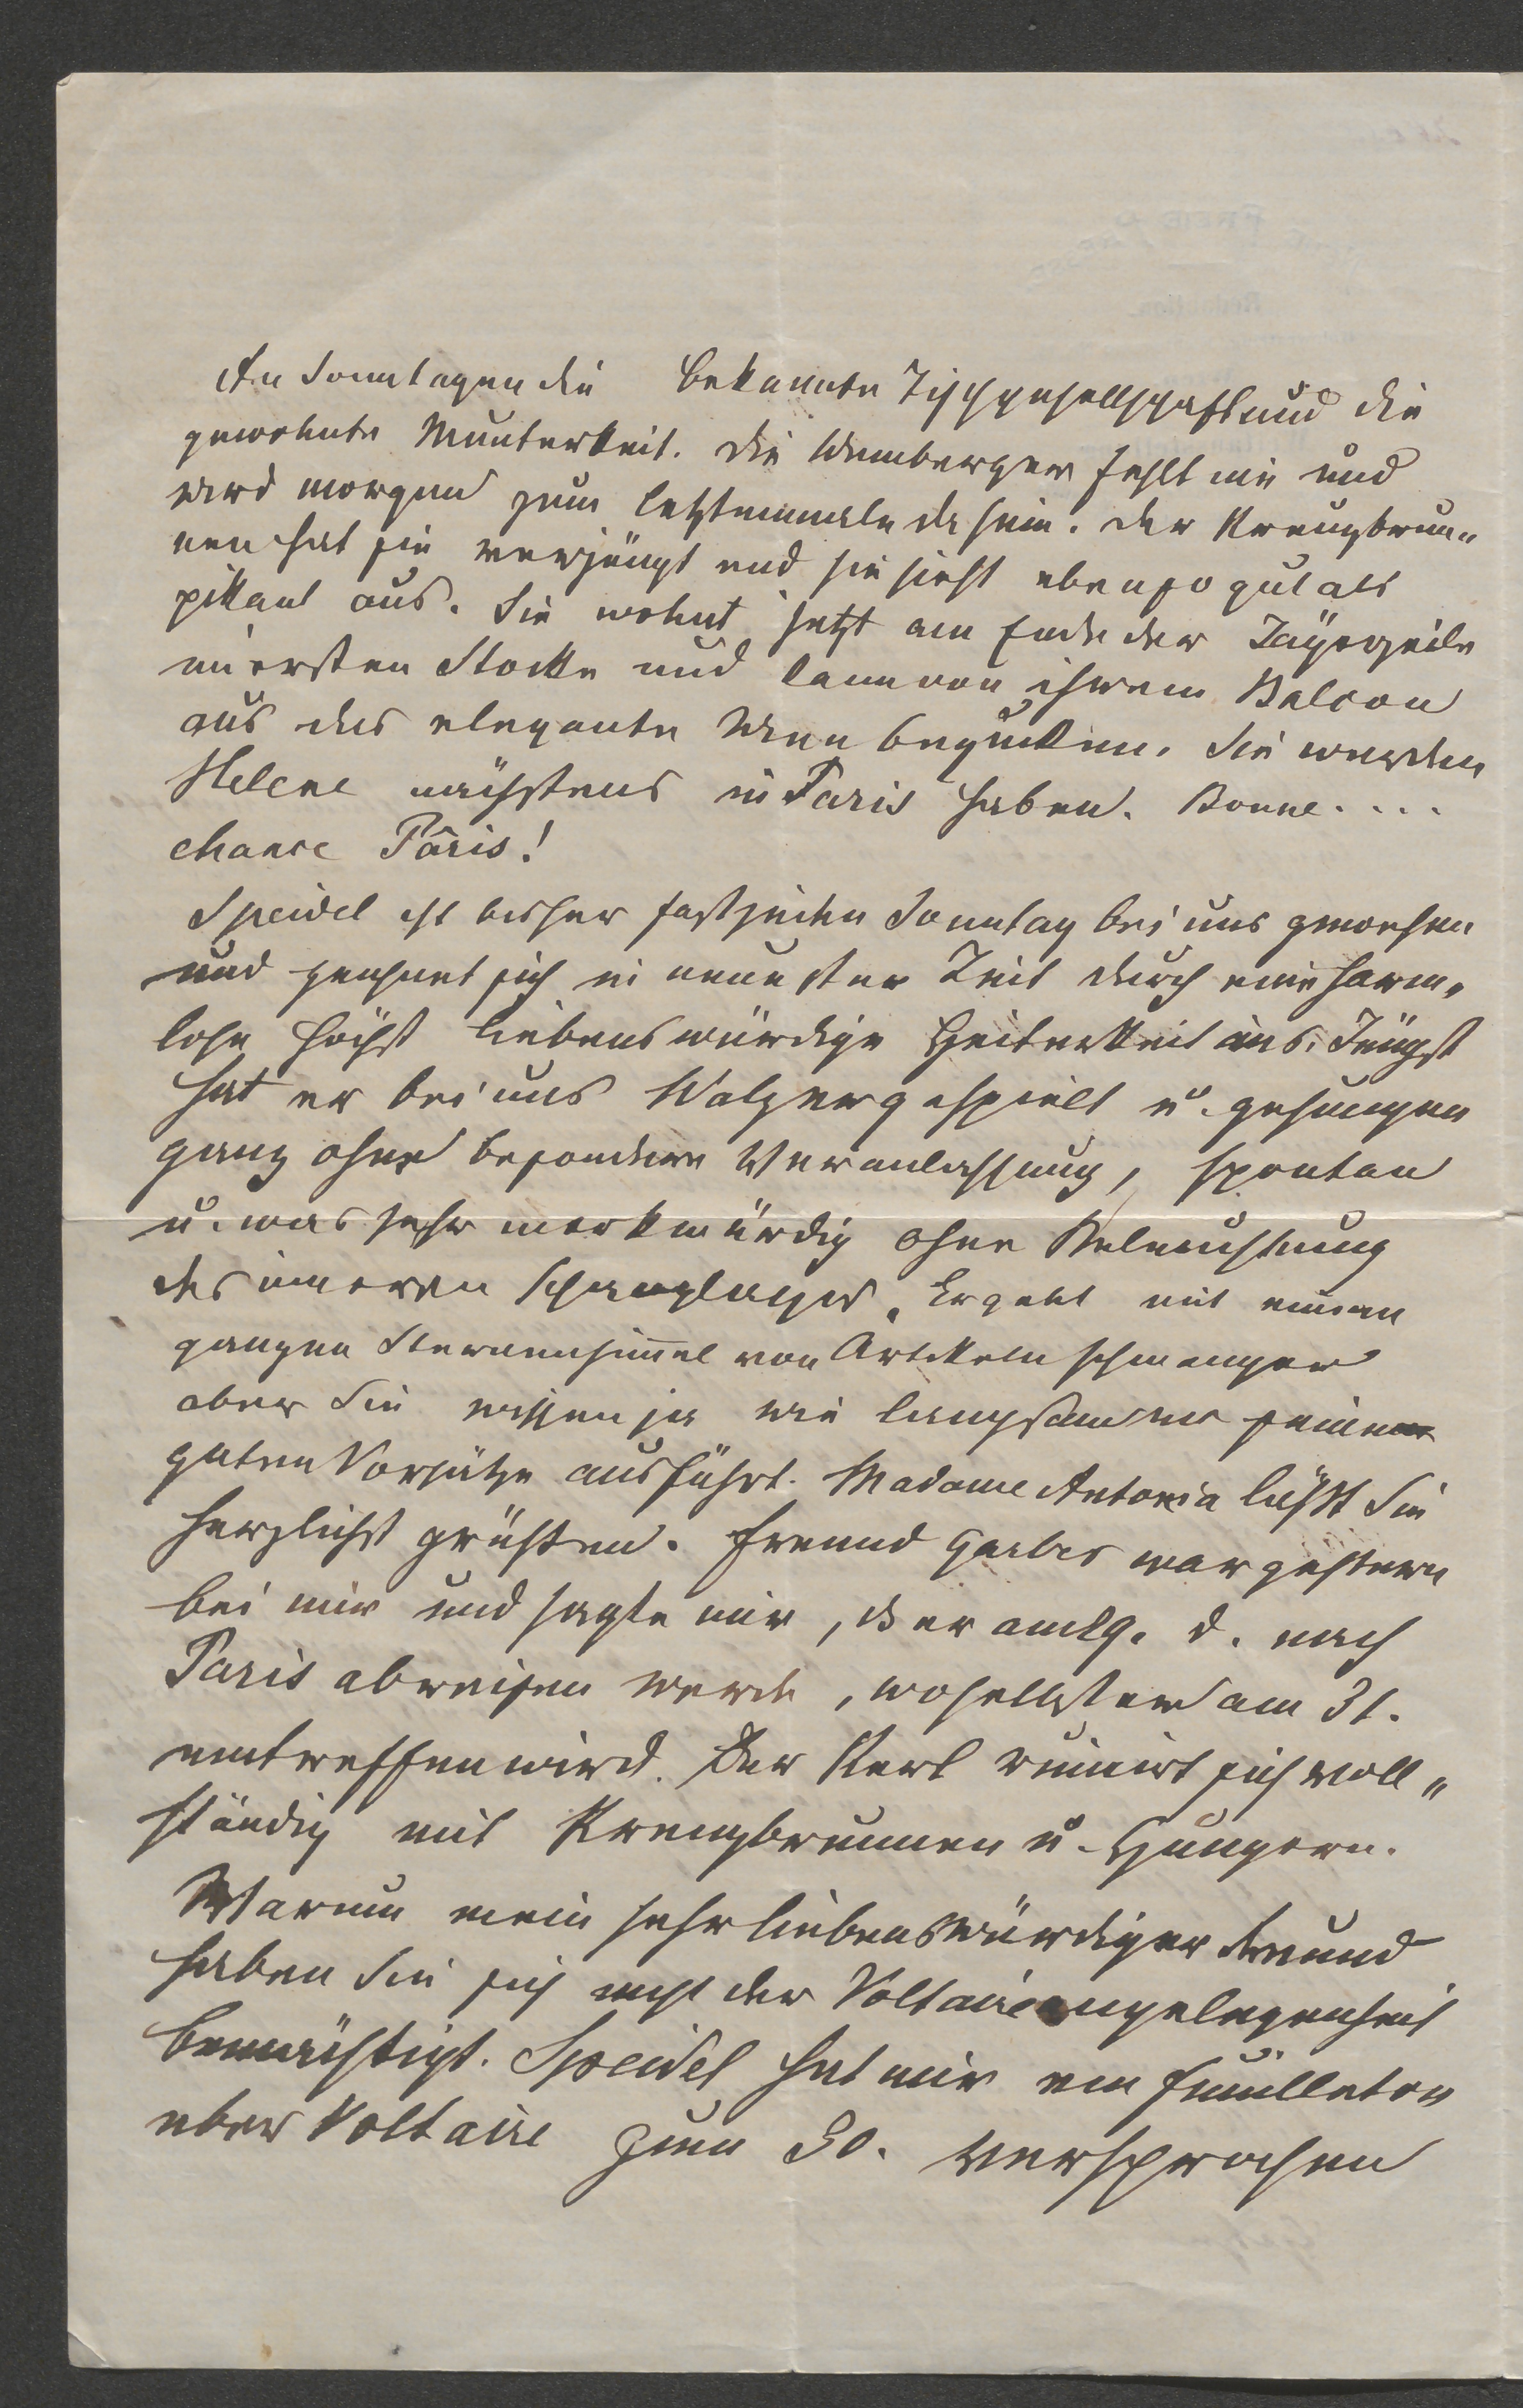 An Sonntagen die bekannte Tischgesellschaft und die
gewohnte Munterkeit. Die Wemberger fehlt nie und
wird morgen zum letztenmale da sein. Der Kreuzbrun„
nen hat sie verjüngt und sie sieht ebenso gut als
pikant aus. Sie wohnt jetzt am Ende der Jägerzeile
im ersten Stocke und kann von ihrem Balcon
aus das elegante Wien begucken. Sie werden
Helene nächstens in Paris haben. Bonne....
chance Pâris!
Speidel ist bisher fast jeden Sonntag bei uns gewesen
und zeichnet sich in neuester Zeit durch eine harm„
lose höchst liebenswürdige Heiterkeit aus. Jüngst
hat er bei uns Walzer gespielt u. gesungen
ganz ohne besondere Veranlassung, spontan
u. was sehr merkwürdig ohne Beleuchtung
des inneren Schauplatzes. Er geht mit einem
ganzen Sternenhim̄el von Artikeln schwanger
aber Sie wissen ja wie langsam er seine
guten Vorsätze ausführt. Madame Antonia läßt Sie
herzlichst grüßen. Freund Garber war gestern
bei mir und sagte mir, ds er am 29. d. nach
Paris abreisen werde, woselbst er am 31.
eintreffen wird. Der Kerl ruinirt sich voll„
ständig mit Kreuzbrunnen u. Hungern.
Warum mein sehr liebenswürdiger Freund
haben Sie sich nicht der Voltaireangelegenheit
bemächtigt. Speidel hat mir ein Feuilleton
über Voltaire zum 30. versprochen